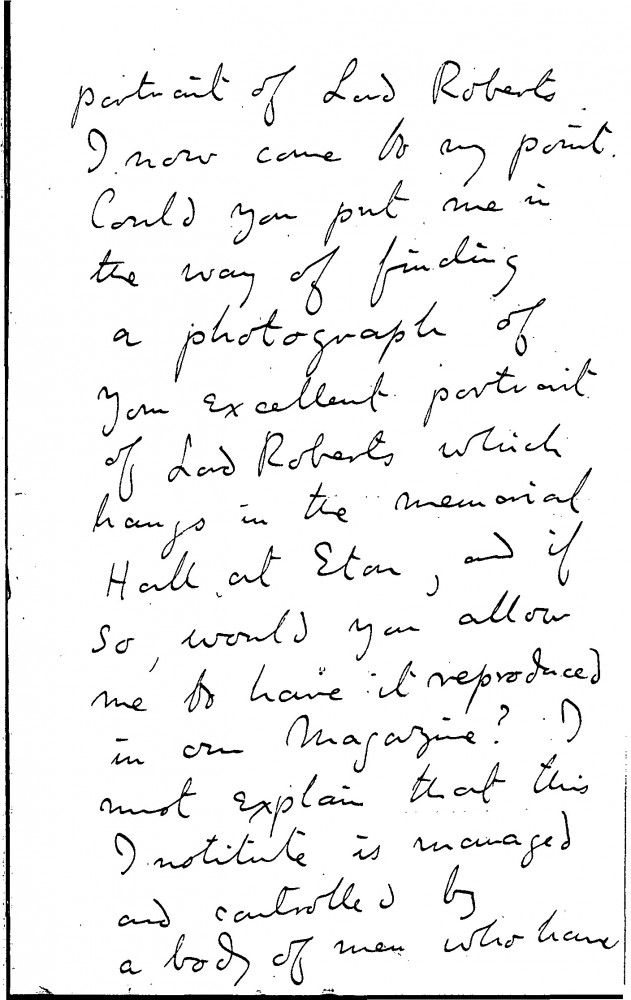 portrait of Lord Roberts.
I now come to my point.
Could you put me in
the way of finding
a photograph of
your excellent portrait
of Lord Roberts which
hangs in the memorial
Hall at Eton, and if
so, would you allow
me to have it reproduced
in our Magazine? I
must explain that this
Institute is managed
and controlled by
a body of men who have